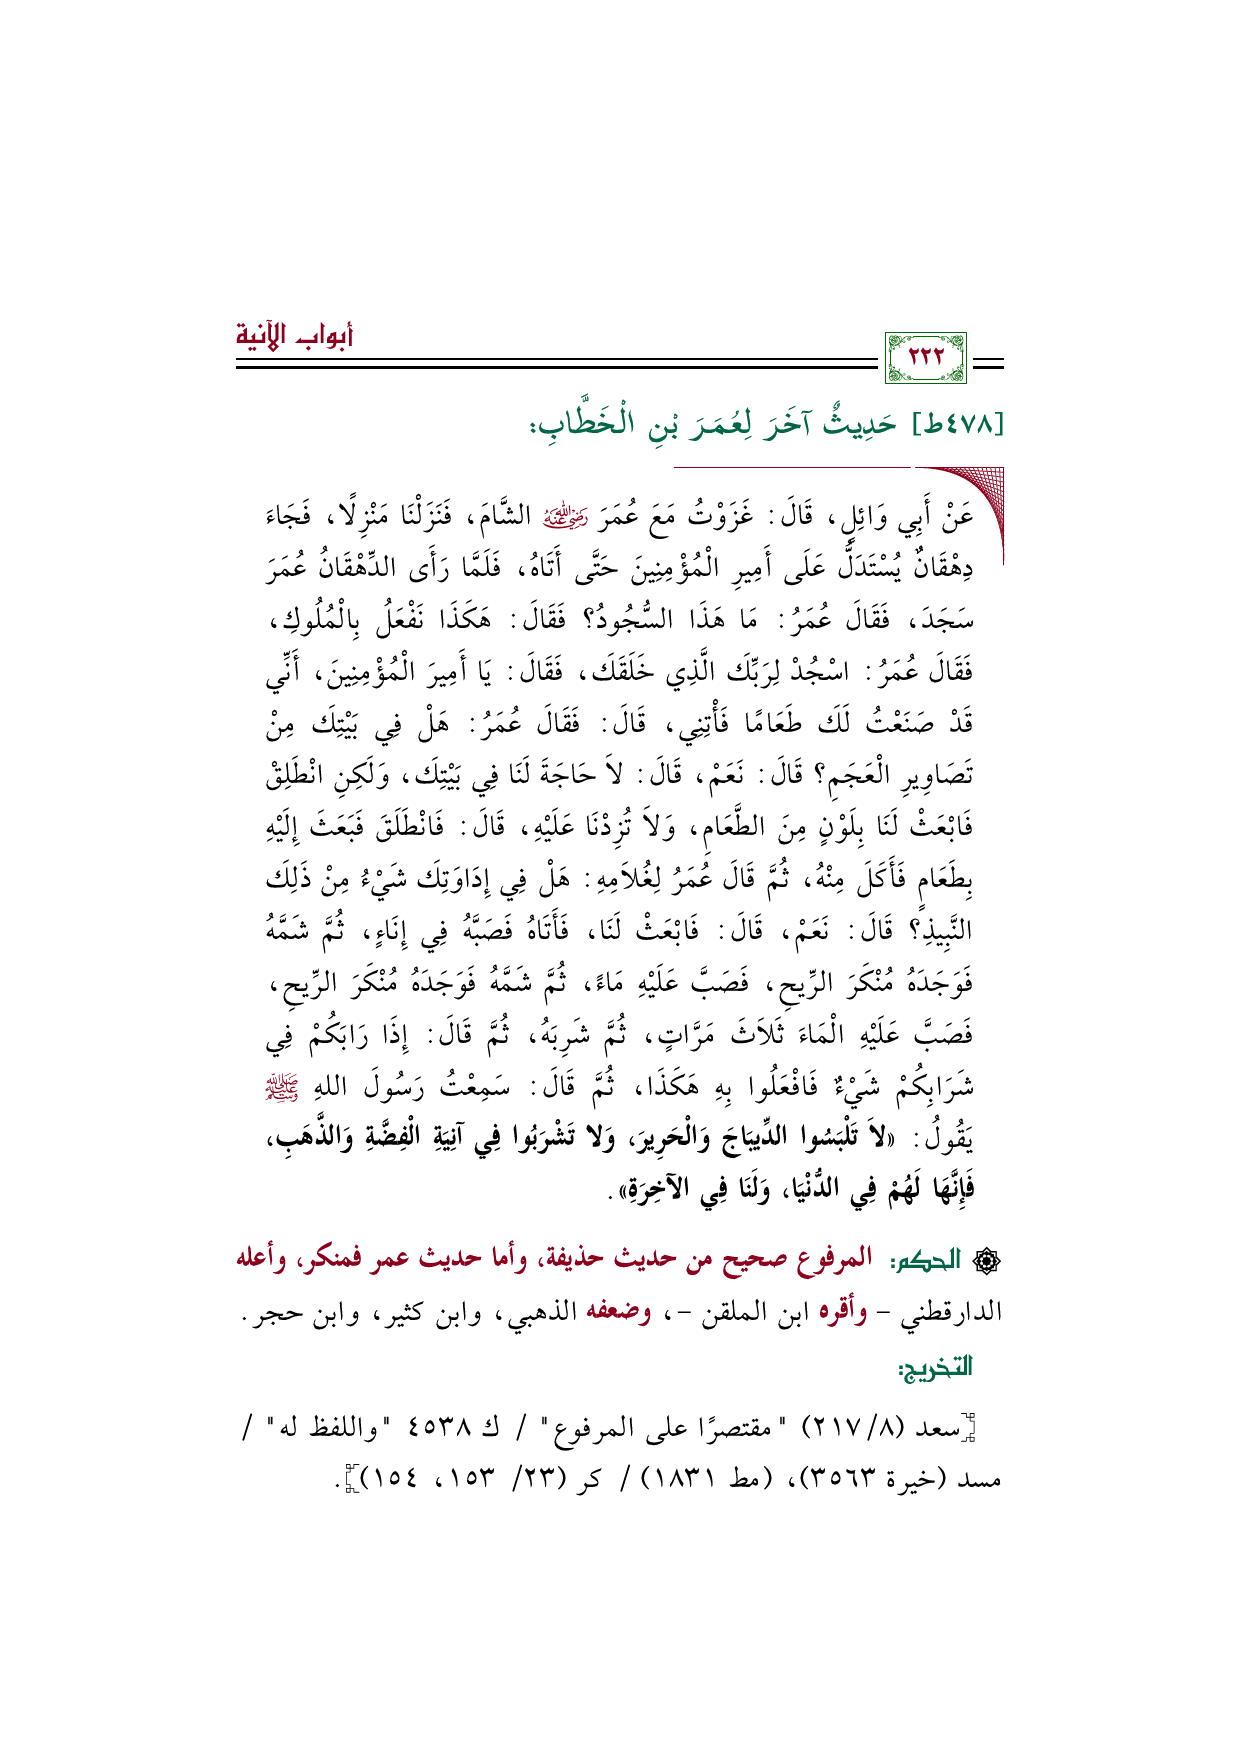 أبواب الآنية
٢٢٢
[٤٧٨ط] حَدِيثٌ آخَرَ لِعُمَرَ بْنِ الْخَطَّابِ:
عَنْ أَبِي وَائِلٍ، قَالَ: غَزَوْتُ مَعَ عُمَرَ رضي الله عنه الشَّامَ، فَنَزَلْنَا مَنْزِلًا، فَجَاءَ
دِهْقَانٌ يُسْتَدَلُّ عَلَى أَمِيرِ الْمُؤْمِنِينَ حَتَّى أَتَاهُ، فَلَمَّا رَأَى الدِّهْقَانُ عُمَرَ
سَجَدَ، فَقَالَ عُمَرُ: مَا هَذَا السُّجُودُ؟ فَقَالَ: هَكَذَا نَفْعَلُ بِالْمُلُوكِ،
فَقَالَ عُمَرُ: اسْجُدْ لِرَبِّكَ الَّذِي خَلَقَكَ، فَقَالَ: يَا أَمِيرَ الْمُؤْمِنِينَ، أَنِّي
قَدْ صَنَعْتُ لَكَ طَعَامًا فَأْتِنِي، قَالَ: فَقَالَ عُمَرُ: هَلْ فِي بَيْتِكَ مِنْ
تَصَاوِيرِ الْعَجَمِ؟ قَالَ: نَعَمْ، قَالَ: لاَ حَاجَةَ لَنَا فِي بَيْتِكَ، وَلَكِنِ انْطَلِقْ
فَابْعَثْ لَنَا بِلَوْنٍ مِنَ الطَّعَامِ، وَلاَ تُزِدْنَا عَلَيْهِ، قَالَ: فَانْطَلَقَ فَبَعَثَ إِلَيْهِ
بِطَعَامٍ فَأَكَلَ مِنْهُ، ثُمَّ قَالَ عُمَرُ لِغُلاَمِهِ: هَلْ فِي إِدَاوَتِكَ شَيْءُ مِنْ ذَلِكَ
النَّبِيذِ؟ قَالَ: نَعَمْ، قَالَ: فَابْعَثْ لَنَا، فَأَتَاهُ فَصَبَّهُ فِي إِنَاءٍ، ثُمَّ شَمَّهُ
فَوَجَدَهُ مُنْكَرَ الرِّيحِ، فَصَبَّ عَلَيْهِ مَاءً، ثُمَّ شَمَّهُ فَوَجَدَهُ مُنْكَرَ الرِّيحِ،
فَصَبَّ عَلَيْهِ الْمَاءَ ثَلاَثَ مَرَّاتٍ، ثُمَّ شَرِبَهُ، ثُمَّ قَالَ: إِذَا رَابَكُمْ فِي
شَرَابِكُمْ شَيْءٌ فَافْعَلُوا بِهِ هَكَذَا، ثُمَّ قَالَ: سَمِعْتُ رَسُولَ اللهِ ﷺ
يَقُولُ: «لاَ تَلْبَسُوا الدِّيبَاجَ وَالْحَرِيرَ، وَلا تَشْرَبُوا فِي آنِيَةِ الْفِضَّةِ وَالذَّهَبِ،
فَإِنَّهَا لَهُمْ فِي الدُّنْيَا، وَلَنَا فِي الآخِرَةِ».
الحكم: المرفوع صحيح من حديث حذيفة، وأما حديث عمر فمنكر، وأعله
الدارقطني - وأقره ابن الملقن -، وضعفه الذهبي، وابن كثير، وابن حجر.
التخريج:
[سعد (٢١٧/٨) "مقتصرًا على المرفوع" / ك ٤٥٣٨ "واللفظ له" /
مسد (خيرة ٣٥٦٣)، (مط ١٨٣١) / كر (٢٣/ ١٥٣، ١٥٤)].